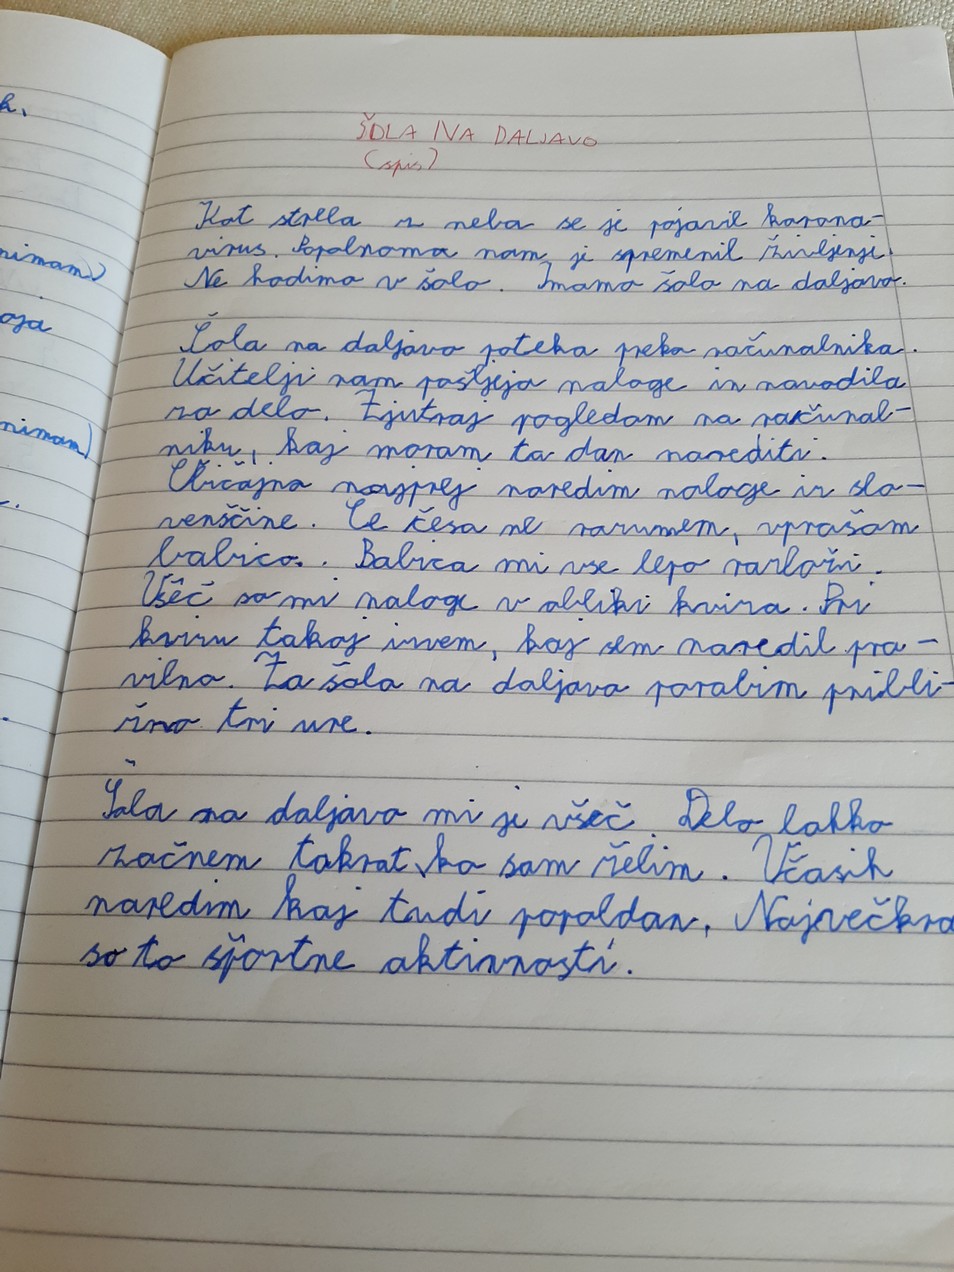 h.
nimam)
oja
nimam)
ŠOLA NA DALJAVO
(spis)
Kot strela z neba se je pojavil korona-
virus. Popolnoma nam je spremenil življenje.
Ne hodimo v šolo. Imamo šolo na daljavo.
Šola na daljavo poteka preko računalnika.
Učitelji nam pošljejo naloge in navodila
za delo. Zjutraj pogledam na računal-
niku, kaj moram ta dan narediti.
Običajno najprej naredim naloge iz slo-
venščine. Če česa ne razumem, vprašam
babico. Babica mi vse lepo razloži.
Všeč so mi naloge v obliki kviza. Pri
kvizu takoj izvem, kaj sem naredil pra-
vilno. Za šolo na daljavo porabim pribli-
žno tri ure.
Šola na daljavo mi je všeč. Delo lahko
začnem takrat, ko sam želim. Včasih
naredim kaj tudi popoldan. Največkra
so to športne aktivnosti.